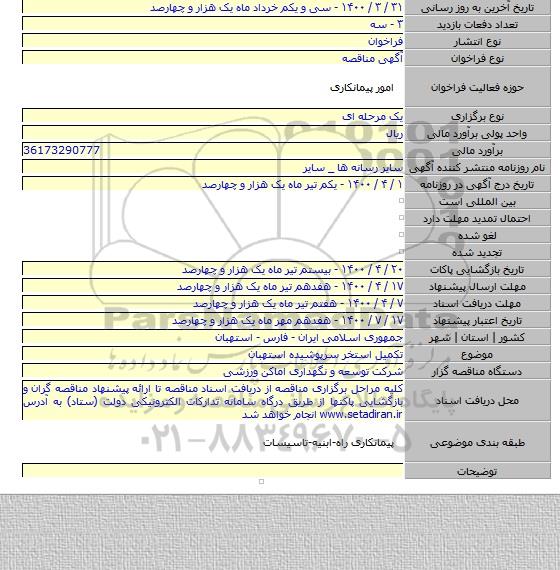 تاریخ آخرین به روز رسانی ۳۱ / ۳ / ۱۴۰۰ - سی و یکم خرداد ماه یک هزار و چهارصد
تعداد دفعات بازدید ۳ - سه
نوع انتشار فراخوان
نوع فراخوان آگهی مناقصه
حوزه فعالیت فراخوان امور پیمانکاری
نوع برگزاری یک مرحله ای
واحد پولی برآورد مالی ریال
برآورد مالی 36173290777
نام روزنامه منتشر کننده آگهی سایر رسانه ها _ سایر
تاریخ درج آگهی در روزنامه ۱ / ۴ / ۱۴۰۰ - یکم تیر ماه یک هزار و چهارصد
بین المللی است
احتمال تمدید مهلت دارد
لغو شده
تجدید شده
تاریخ بازگشایی پاکات ۲۰ / ۴ / ۱۴۰۰ - بیستم تیر ماه یک هزار و چهارصد
مهلت ارسال پیشنهاد ۱۷ / ۴ / ۱۴۰۰ - هفدهم تیر ماه یک هزار و چهارصد
مهلت دریافت اسناد ۷ / ۴ / ۱۴۰۰ - هفتم تیر ماه یک هزار و چهارصد
تاریخ اعتبار پیشنهاد ۱۷ / ۷ / ۱۴۰۰ - هفدهم مهر ماه یک هزار و چهارصد
کشور | استان | شهر جمهوری اسلامی ایران - فارس - استهبان
موضوع تکمیل استخر سرپوشیده استهبان
دستگاه مناقصه گزار شرکت توسعه و نگهداری اماکن ورزشی
محل دریافت اسناد کلیه مراحل برگزاری مناقصه از دریافت اسناد مناقصه تا ارائه پیشنهاد مناقصه گران و
بازگشایی پاکتها از طریق درگاه سامانه تدارکات الکترونیکی دولت (ستاد) به آدرس
www.setadiran.ir انجام خواهد شد
طبقه بندی موضوعی پیمانکاری راه-ابنیه-تاسیسات
توضیحات
ParsNamadData
۰۲۱-۸۸۳۴۹۶۷۰-۵